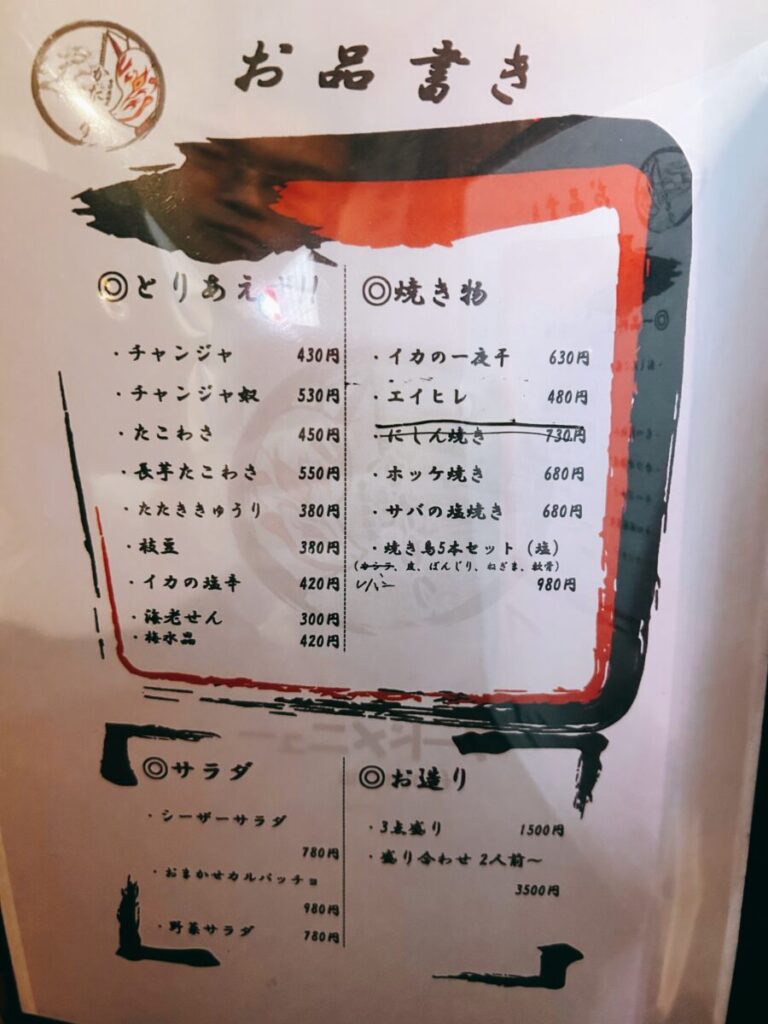 お品書き
◎とりあえず
・チャンジャ 430円
・チャンジャ奴 530円
・たこわさ 450円
・長芋たこわさ 550円
・たたききゅうり 380円
・枝豆 380円
・イカの塩辛 420円
・海老せん 300円
・梅水晶 420円
◎焼き物
・イカの一夜干 630円
・エイヒレ 480円
・にしん焼き 730円
・ホッケ焼き 680円
・サバの塩焼き 680円
・焼き鳥5本セット（塩）
（カシラ、皮、ぼんじり、ねぎま、軟骨）
レバー 980円
◎サラダ
・シーザーサラダ
780円
・おまかせカルパッチョ
980円
・野菜サラダ 780円
◎お造り
・3点盛り 1500円
・盛り合わせ 2人前〜
3500円